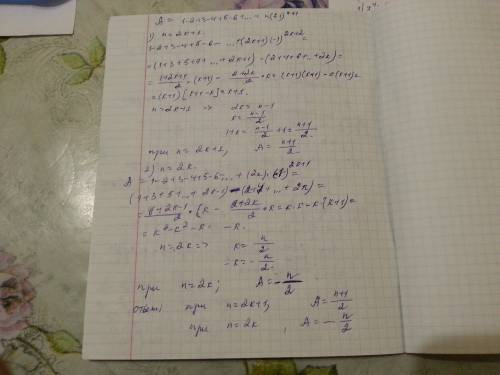 A = 1-2+3-4+5-6+...+ n(-1)^{n+1}
1) n=2k+1.
1-2+3-4+5-6-...+(2k+1)(-1)^{2k+2}=
=(1+3+5+...+2k+1) - (2+4+6+...+2k)=
= \frac{1+2k+1}{2}·(k+1) - \frac{2+2k}{2}·k = (k+1)(k+1) - k(k+1)=
=(k+1)[k+1-k]=k+1.
n=2k+1 => 2k=n-1
k=\frac{n-1}{2}
1+k=\frac{n-1}{2}+1=\frac{n+1}{2}
при n=2k+1, A=\frac{n+1}{2}
2) n=2k.
A=1-2+3-4+5-6+...+(2k)(-1)^{2k+1}=
(1+3+5+...+2k-1)-(2+4+...+2k)=
=\frac{1+2k-1}{2}·k - \frac{2+2k}{2}·k=k·k-k(k+1)=
=k²-k²-k= -k.
n=2k=> k=\frac{n}{2}
-k=-\frac{n}{2}
при n=2k; A=-\frac{n}{2}
ответ: при n=2k+1, A=\frac{n+1}{2}
при n=2k, A=-\frac{n}{2}